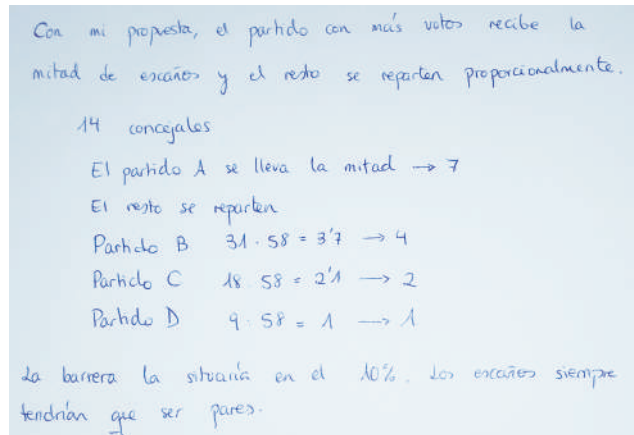 Con mi propuesta, el partido con más votos recibe la
mitad de escaños y el resto se reparten proporcionalmente.
14 concejales
El partido A se lleva la mitad → 7
El resto se reparten
Partido B 31 · 58 = 3'7 → 4
Partido C 18 58 = 2'1 → 2
Partido D 9 · 58 = 1 → 1
La barrera la situaría en el 10%. Los escaños siempre
tendrían que ser pares.